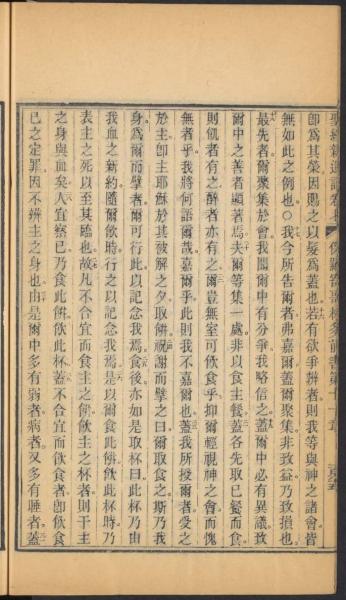 即為其榮因賜之以髮為蓋也若有欲爭辨者則我等與神之諸會皆
無如此之例也○我今所告爾者弗嘉爾蓋爾聚集非致益乃致損也
最先者爾聚集於會我聞爾中有分爭我略信之蓋爾中必有異議致
爾中之善者顯著焉夫爾等集一處非以食主餐蓋各先取已餐而食
則飢者有之醉者亦有之爾豈無室可飲食乎抑爾輕視神之會而愧
無者乎我將何語爾哉嘉爾乎此則我不嘉爾也蓋我所授爾者受之
於主即主耶穌於其被解之夕取餅祝謝而擘之曰爾取食之斯乃我
身為爾而擘者爾可行此以記念我焉食後亦如是取杯曰此杯乃由
我血之新約隨爾飲時行之以記念我焉是以爾食此餅飲此杯時乃
表主之死以至其臨也故凡不合宜而食主之餅飲主之杯者則干主
之身與血矣人宜察已乃食此餅飲此杯蓋不合宜而飲食者即飲食
已之定罪因不辨主之身也由是爾中多有弱者病者又多有睡者蓋